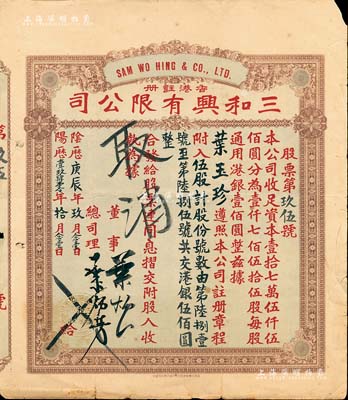 SAM WO HING & CO., LTD.
香港註册
三和興有限公司
股票第玖伍號
本公司收足資本壹拾七萬伍仟伍
佰圓分為壹仟七佰伍拾伍股每股
通用港銀壹佰圓茲據
葉玉珍遵照本公司註册章程
附伍股計股份號數由第陸捌壹
號至第陸捌伍號共交港銀伍佰圓
整
合發給股票連同息摺交附股人收
執為據
董事
總司理
陰歷庚辰年玖月
陽歷壹玖肆零年拾月
取消